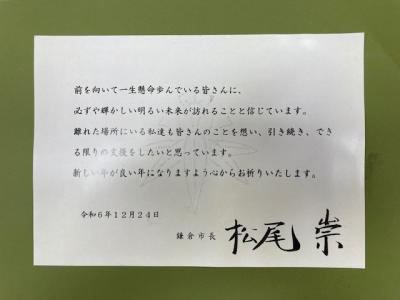 前を向いて一生懸命歩んでいる皆さんに、
必ずや輝かしい明るい未来が訪れることと信じています。
離れた場所にいる私達も皆さんのことを想い、引き続き、でき
る限りの支援をしたいと思っています。
新しい年が良い年になりますよう心からお祈りいたします。
令和6年12月24日
鎌倉市長 松尾 崇